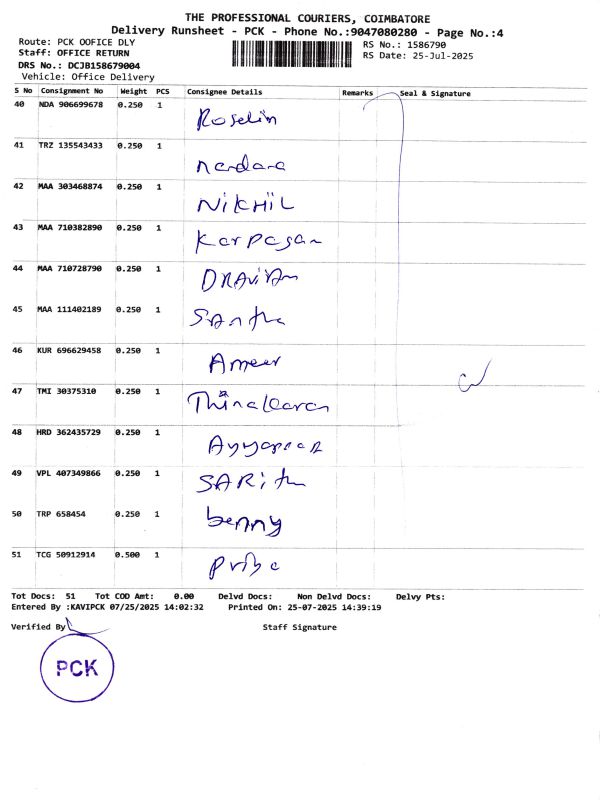 THE PROFESSIONAL COURIERS, COIMBATORE
Delivery Runsheet - PCK - Phone No.:9047080280 - Page No.:4
Route: PCK OOFICE DLY RS No.: 1586790
Staff: OFFICE RETURN RS Date: 25-Jul-2025
DRS No.: DCJB158679004
Vehicle: Office Delivery
S No Consignment No Weight PCS Consignee Details Remarks Seal & Signature
40 NDA 906699678 0.250 1 Roselin
41 TRZ 135543433 0.250 1
42 MAA 303468874 0.250 1 NIKHIL
43 MAA 710382890 0.250 1 Karpagam
44 MAA 710728790 0.250 1
45 MAA 111402189 0.250 1
46 KUR 696629458 0.250 1 Ameer
47 TMI 30375310 0.250 1 Thinakaran
48 HRD 362435729 0.250 1
49 VPL 407349866 0.250 1
50 TRP 658454 0.250 1 benny
51 TCG 50912914 0.500 1 Priya
Tot Docs: 51 Tot COD Amt: 0.00 Delvd Docs: Non Delvd Docs: Delvy Pts:
Entered By :KAVIPCK 07/25/2025 14:02:32 Printed On: 25-07-2025 14:39:19
Verified By Staff Signature
PCK